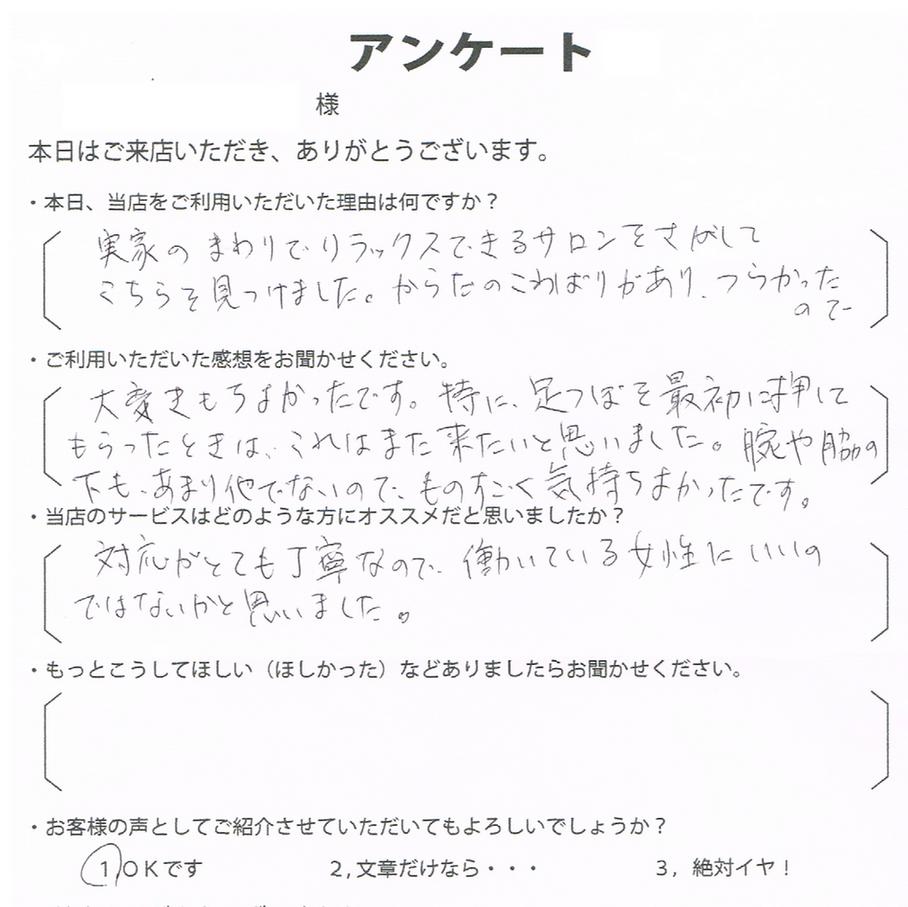 アンケート
様
本日はご来店いただき、ありがとうございます。
・本日、当店をご利用いただいた理由は何ですか？
実家のまわりでリラックスできるサロンをさがして
こちらを見つけました。からだのこわばりがあり、つらかった
ので
・ご利用いただいた感想をお聞かせください。
大変きもちよかったです。特に、足つぼを最初に押して
もらったときは、これはまた来たいと思いました。腕や脇の
下も、あまり他でないので、ものすごく気持ちよかったです。
・当店のサービスはどのような方にオススメだと思いましたか？
対応がとても丁寧なので、働いている女性にいいの
ではないかと思いました。
・もっとこうしてほしい（ほしかった）などありましたらお聞かせください。
・お客様の声としてご紹介させていただいてもよろしいでしょうか？
1，OKです 2，文章だけなら・・・ 3，絶対イヤ！